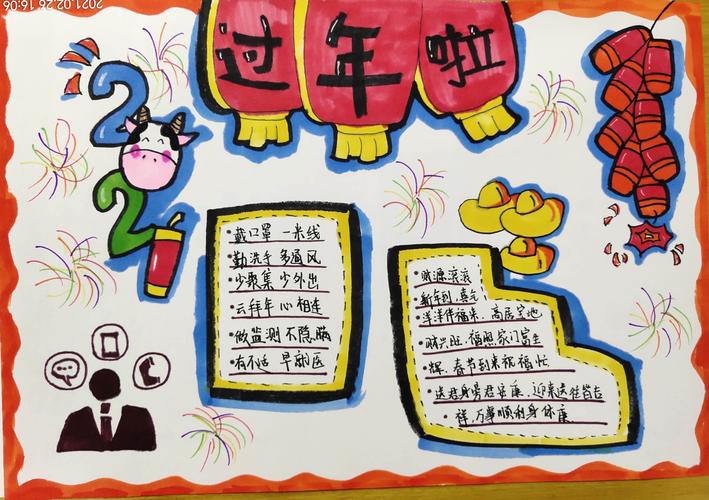 2021.02.26 16:06
过年啦
2021
戴口罩 一米线
勤洗手 多通风
少聚集 少外出
云拜年 心相连
做监测 不隐瞒
有不适 早就医
财源滚滚
新年到,喜气
洋洋伴福来,高居宝地
财兴旺,福照家门富生
辉,春节到来祝福忙
送君身旁君安康,迎来送往皆吉
祥,万事顺利身体康